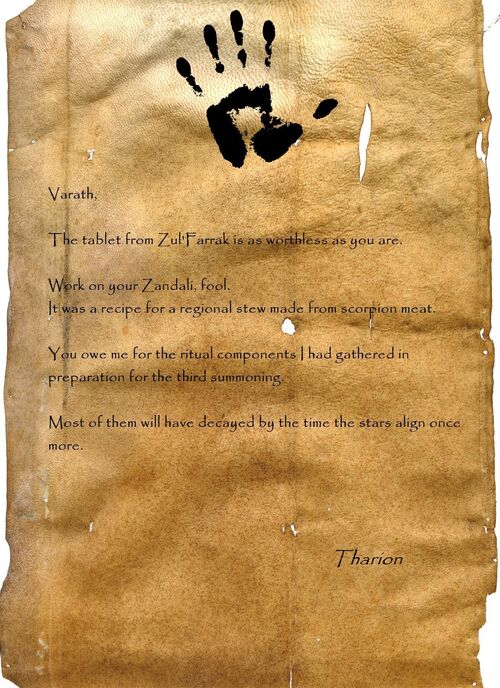 Varath,
The tablet from Zul'Farrak is as worthless as you are.
Work on your Zandali, fool.
It was a recipe for a regional stew made from scorpion meat.
You owe me for the ritual components I had gathered in
preparation for the third summoning.
Most of them will have decayed by the time the stars align once
more.
Tharion